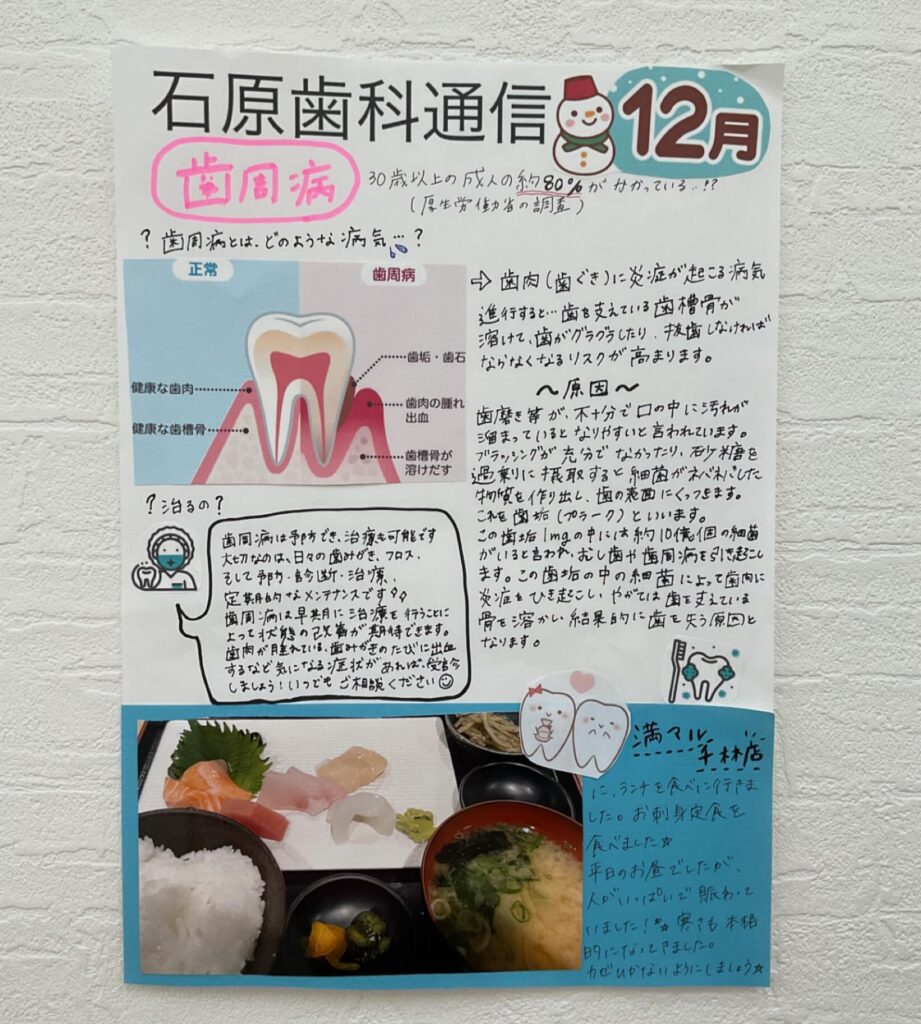 石原歯科通信
12月
歯周病
30歳以上の成人の約80%がかかっている…!?
(厚生労働省の調査)
?歯周病とは、どのような病気…?
正常
歯周病
健康な歯肉
健康な歯槽骨
歯垢・歯石
歯肉の腫れ
出血
歯槽骨が
溶けだす
⇨ 歯肉(歯ぐき)に炎症が起こる病気
進行すると…歯を支えている歯槽骨が
溶けて、歯がグラグラしたり、抜歯しなければ
ならなくなるリスクが高まります。
〜原因〜
歯磨き等が、不十分で口の中に汚れが
溜まっているとなりやすいと言われています。
ブラッシングが充分でなかったり、砂糖を
過剰に摂取すると細菌がネバネバした
物質を作り出し、歯の表面にくっつきます。
これを歯垢(プラーク)といいます。
この歯垢1mgの中には約10億個の細菌
がいると言われ、むし歯や歯周病を引き起こし
ます。この歯垢の中の細菌によって歯肉に
炎症をひき起こし、やがては歯を支えている
骨を溶かし結果的に歯を失う原因と
なります。
?治るの?
歯周病は予防でき、治療も可能です
大切なのは、日々の歯みがき、フロス、
そして予防・診断・治療、
定期的なメンテナンスです
歯周病は早期に治療を行うことに
よって状態の改善が期待できます。
歯肉が腫れている、歯みがきのたびに出血
するなど気になる症状があれば、受診
しましょう!いつでもご相談ください
満マル
平林店
に、ランチを食べに行きま
した。お刺身定食を
食べました☆
平日のお昼でしたが、
人がいっぱいで賑わって
いました!☆寒さも本格
的になってきました。
カゼひかないようにしましょう☆